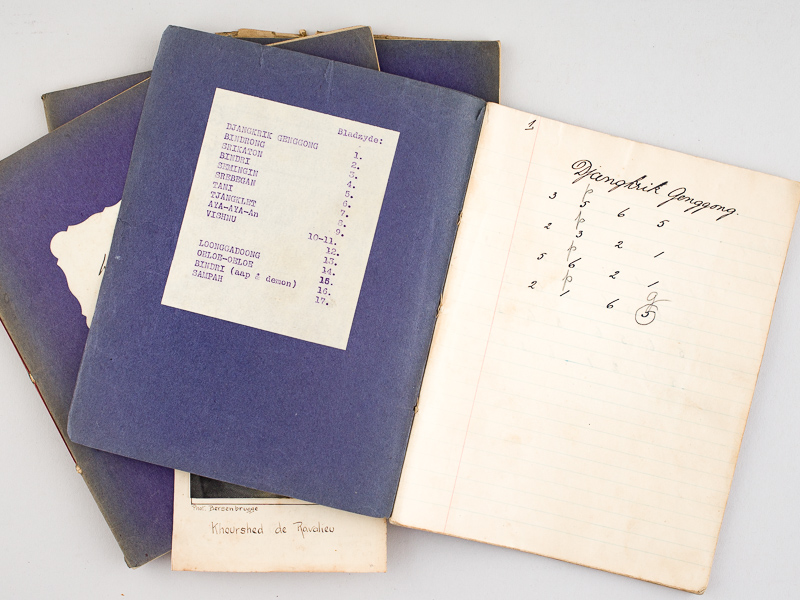 Bladzyde:
DJANGKRIK GENGGONG 1.
BINDRONG 2.
SRIKATON 3.
BINDRI 4.
SEMINGIN 5.
SREBEGAN 6.
TANI 7.
TJANGKLET 8.
AYA-AYA-AN 9.
VISHNU 10-11.
12.
13.
LOONGGADOONG 14.
OELOR-OELOR 15.
BINDRI (aap & demon) 16.
SAMPAH 17.
1
Djangkrik Genggong.
p
3 5 6 5
p
2 3 2 1
p
5 6 2 1
p g
2 1 6 5
Fot. Berssenbrugge
Khourshed de Ravalieu